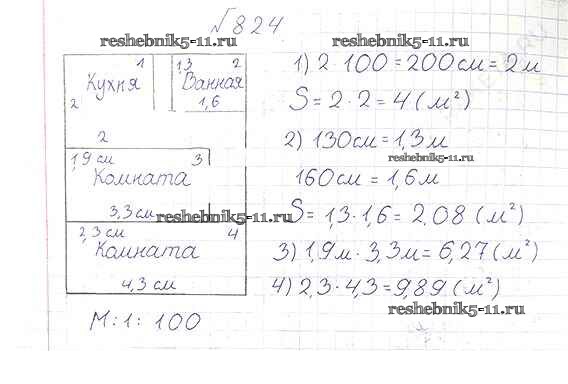 №824
reshebnik5-11.ru
reshebnik5-11.ru
1 1,3 2
Кухня Ванная
2 1,6
2
1,9 см 3
Комната
3,3 см
reshebnik5-11.ru
2,3 см 4
Комната
4,3 см
М:1:100
1) 2·100=200см=2м
S=2·2=4(м²)
2) 130см=1,3м
reshebnik5-11.ru
160см=1,6м
S=1,3·1,6=2.08(м²)
3) 1,9м·3,3м=6,27(м²)
4) 2,3·4,3=9,89(м²)
reshebnik5-11.ru